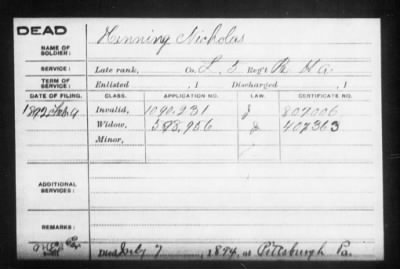 DEAD
NAME OF SOLDIER: Henning Nicholas
SERVICE: Late rank, Co. L. 5 Reg't H. A.
TERM OF SERVICE: Enlisted , 1 Discharged , 1
DATE OF FILING. CLASS. APPLICATION NO. LAW. CERTIFICATE NO.
1892 Invalid, 1090.231 807006
Widow, 598,956 407363
Minor,
ADDITIONAL SERVICES:
REMARKS:
Died July 7, 1894, at Pittsburgh Pa.